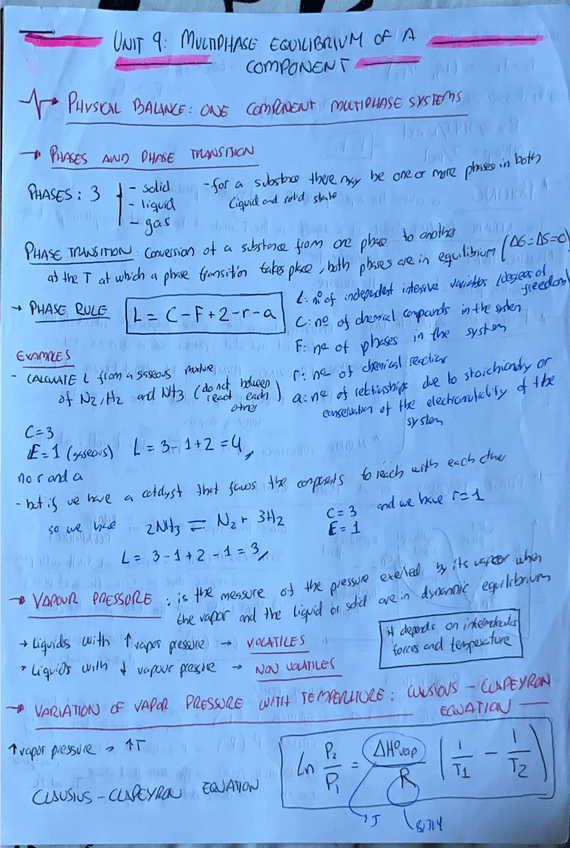 UNIT 9: MULTIPHASE EQUILIBRIUM OF A
COMPONENT
PHYSICAL BALANCE: ONE COMPONENT MULTIPHASE SYSTEMS
→ PHASES AND PHASE TRANSITION
PHASES: 3
- solid
- liquid
- gas
- for a substance there may be one or more phases in both
liquid and solid state
PHASE TRANSITION: Conversion of a substance from one phase to another
at the T at which a phase transition takes place, both phases are in equilibrium (ΔG=ΔS=0)
→ PHASE RULE
L = C-F+2-r-a
L: nº of independent intensive variables (degrees of
freedom)
C: nº of chemical compounds in the system
F: nº of phases in the system
r: nº of chemical reactions
a: nº of relationships due to stoichiometry or
conservation of the electroneutrality of the
system
EXAMPLES
- CALCULATE L from a gaseous mixture
of N2, H2 and NH3 (do not between
react each
other)
C=3
E=1 (gaseous) L = 3-1+2 = 4,
no r and a
- but if we have a catalyst that the components to reach with each other
so we have 2NH3 ⇌ N2 + 3H2
C=3
E=1
and we have r=1
L = 3-1+2-1 = 3,
→ VAPOUR PRESSURE: is the measure of the pressure exerted by its vapor when
the vapor and the liquid or solid are in dynamic equilibrium
→ Liquids with ↑ vapor pressure → VOLATILES
→ Liquids with ↓ vapour pressure → NON VOLATILES
it depends on
forces and temperature
→ VARIATION OF VAPOR PRESSURE WITH TEMPERTURE: CLAUSIUS-CLAPEYRON
EQUATION
↑ vapor pressure → ↑T
CLAUSIUS-CLAPEYRON EQUATION
ln P2/P1 = ΔHºvap/R (1/T1 - 1/T2)
J
8'314